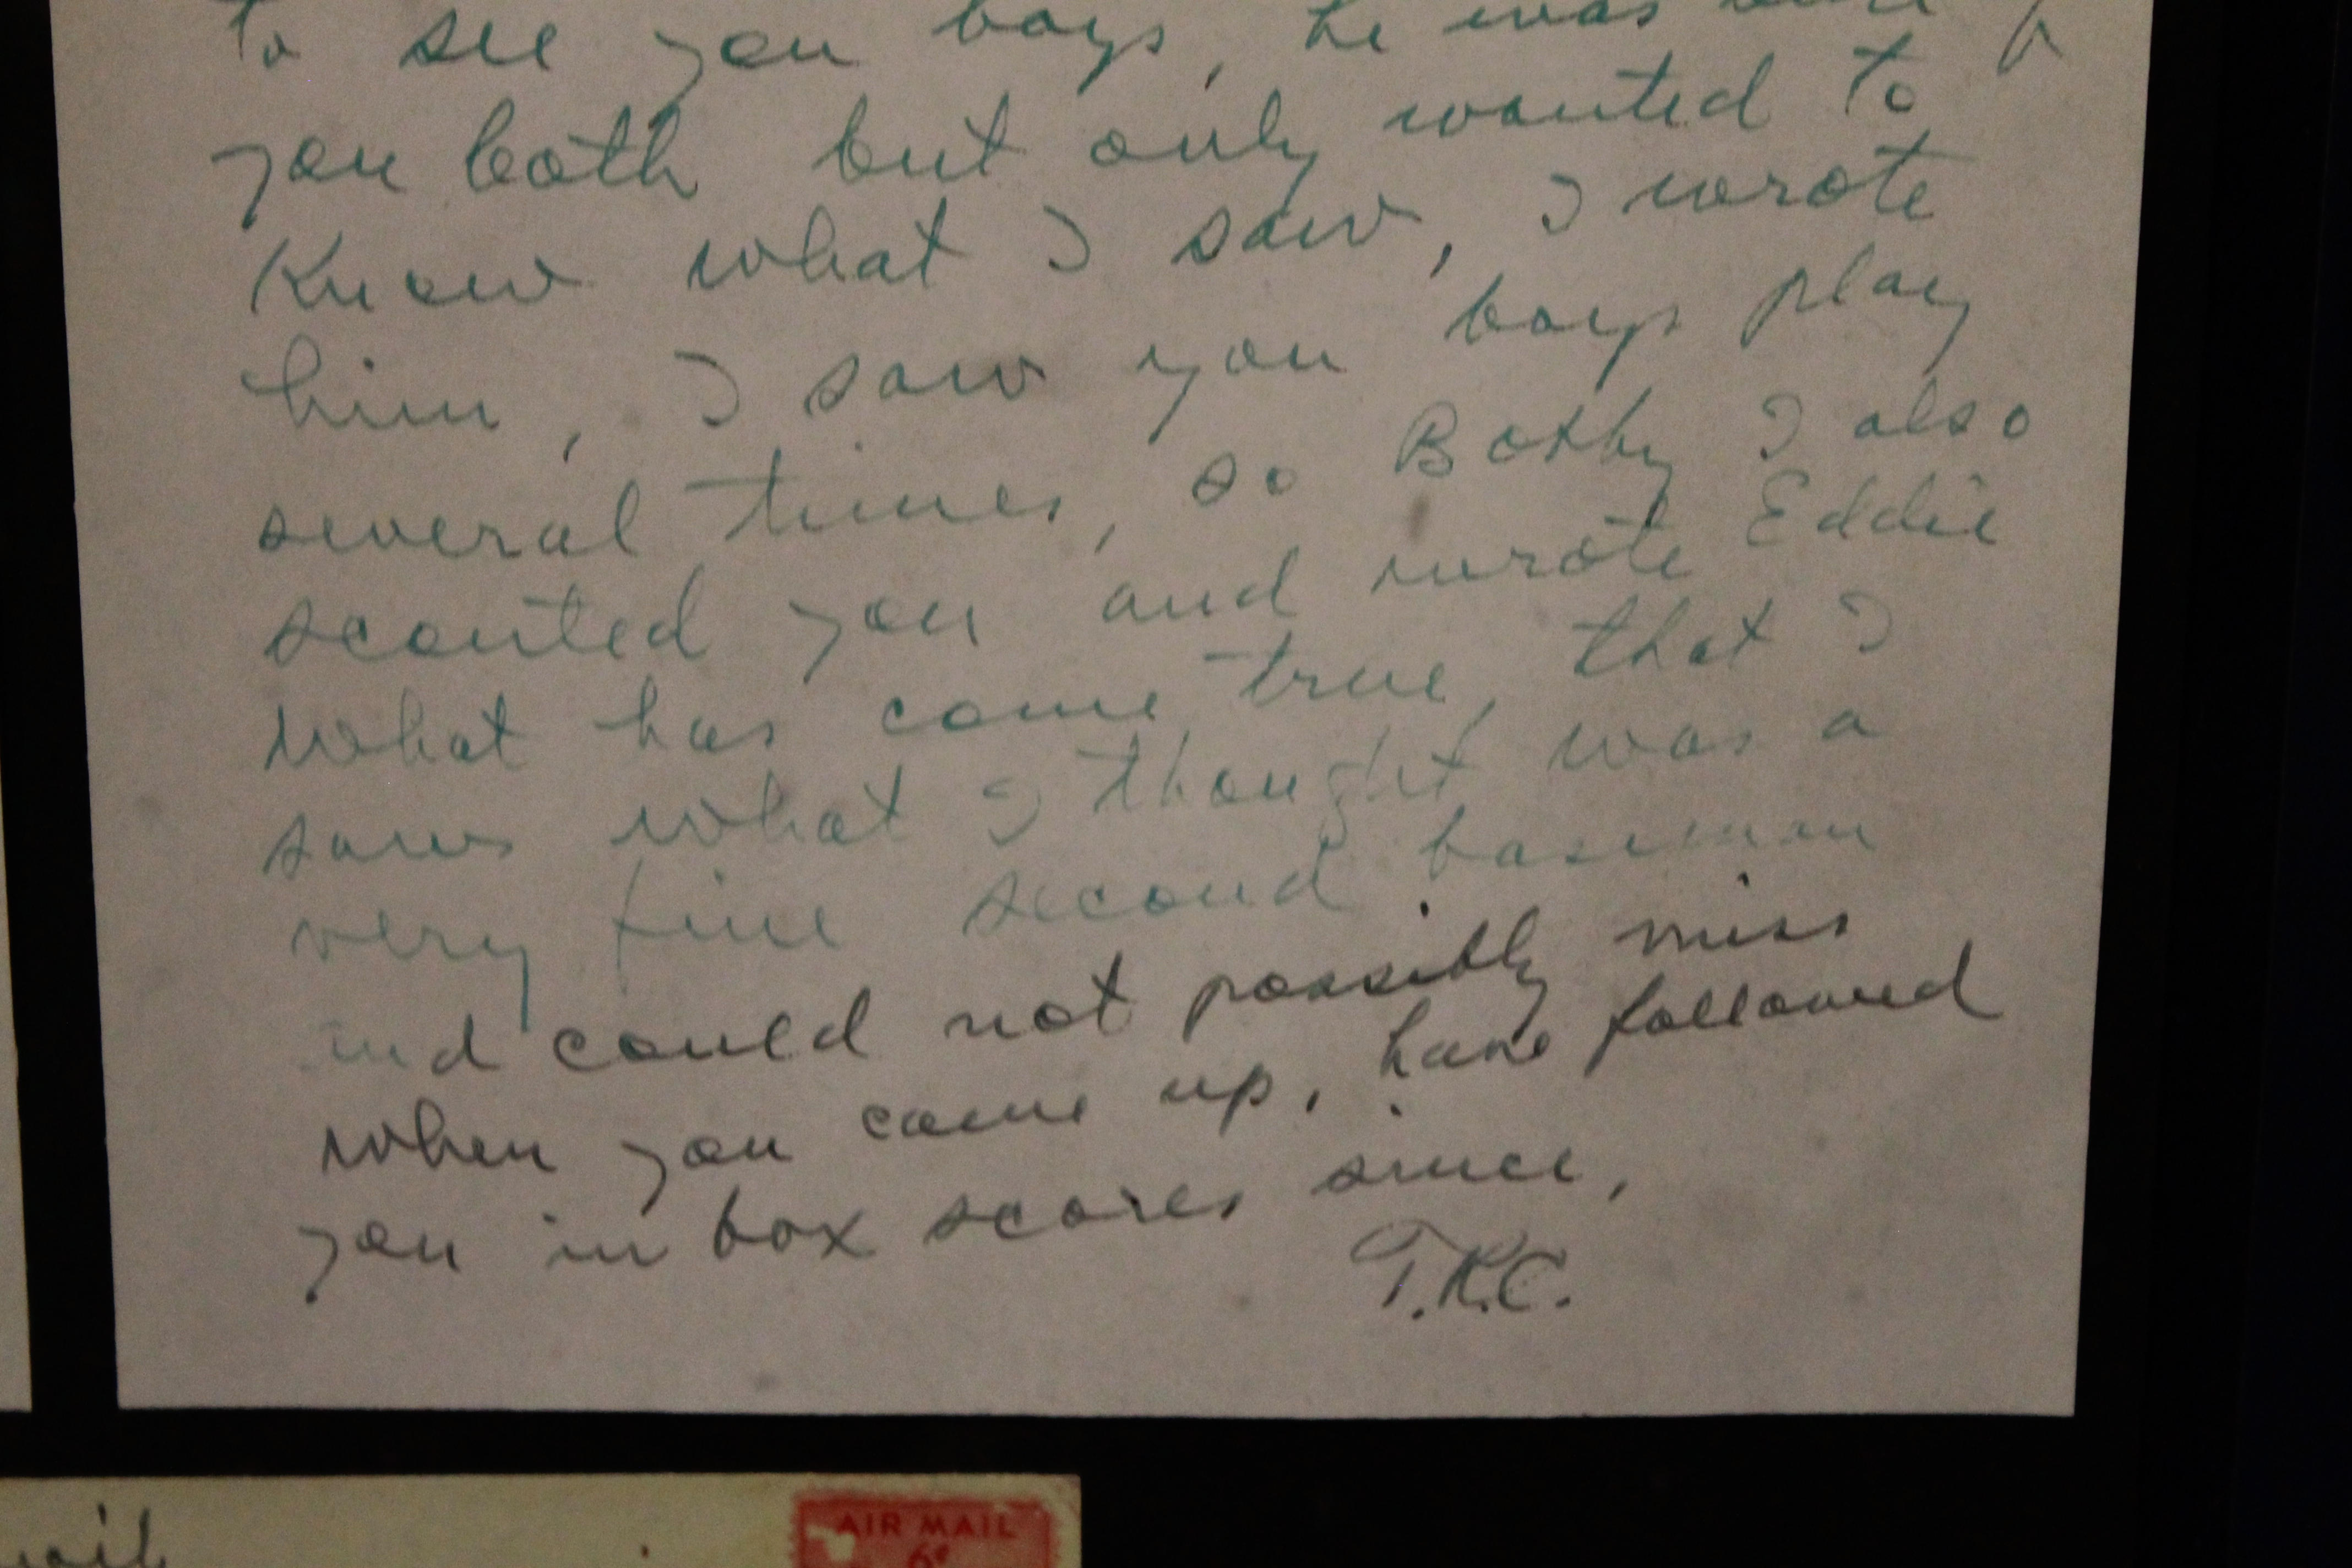 to see you boys, he was
you both but only wanted to
Know what I saw, I wrote
him, I saw you boys play
several times, so Bobby I also
scouted you and wrote Eddie
what has come true, that I
saw what I thought was a
very fine second baseman
and could not possibly miss
when you came up, have followed
you in box scores since,
T.R.C.
AIR MAIL
6¢